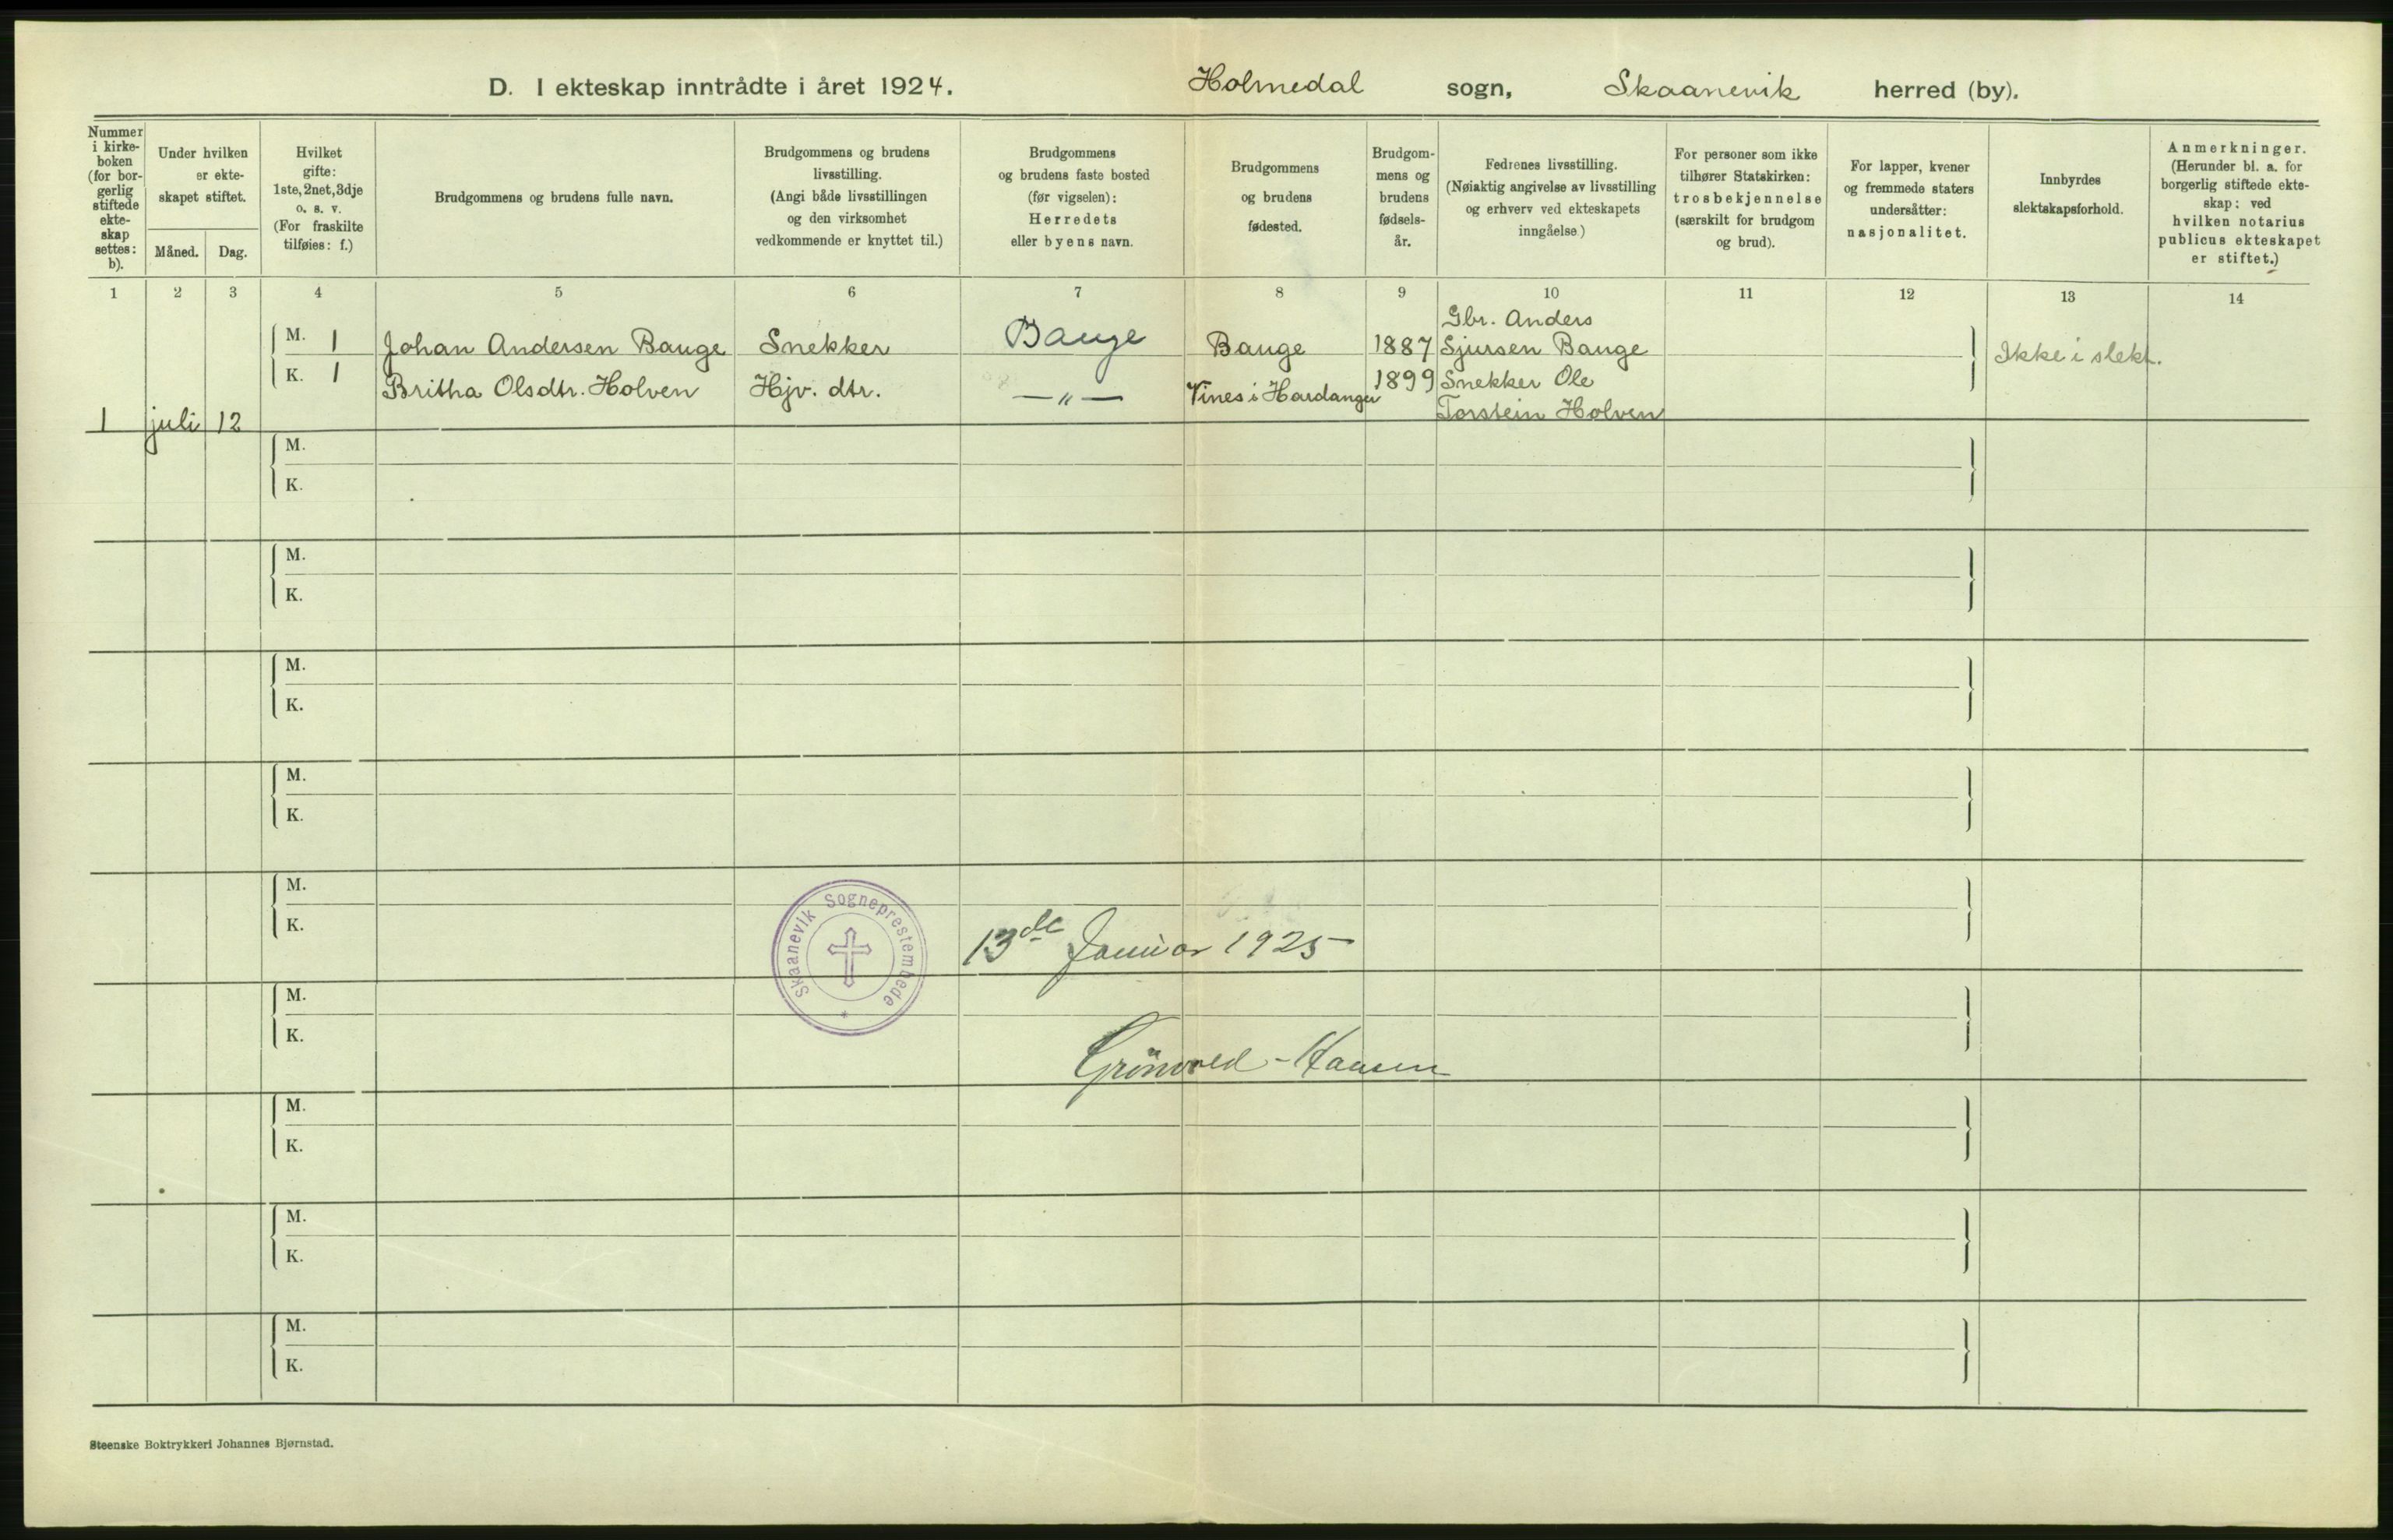 D. I ekteskap inntrådte i året 1924. Holmedal sogn, Skaanevik herred (by).
Nummer i kirkeboken (for borgerlig stiftede ekteskap settes: b).
Under hvilken er ekteskapet stiftet.
Måned. Dag.
Hvilket gifte: 1ste, 2net, 3dje o. s. v. (For fraskilte tilføies: f.)
Brudgommens og brudens fulle navn.
Brudgommens og brudens livsstilling. (Angi både livsstillingen og den virksomhet vedkommende er knyttet til.)
Brudgommens og brudens faste bosted (før vigselen): Herredets eller byens navn.
Brudgommens og brudens fødested.
Brudgommens og brudens fødselsår.
Fedrenes livsstilling. (Nøiaktig angivelse av livsstilling og erhverv ved ekteskapets inngåelse.)
For personer som ikke tilhører Statskirken: trosbekjennelse (særskilt for brudgom og brud).
For lapper, kvener og fremmede staters undersåtter: nasjonalitet.
Innbyrdes slektskapsforhold.
Anmerkninger. (Herunder bl. a. for borgerlig stiftede ekteskap: ved hvilken notarius publicus ekteskapet er stiftet.)
1 2 3 4 5 6 7 8 9 10 11 12 13 14
M. 1 Johan Andersen Bauge Snekker Bauge Bauge 1887 Gbr. Anders Sjursen Bauge Ikke i slekt.
K. 1 Britha Olsdtr. Holven Hjv. dtr. — " — Vines i Hardanger 1899 Snekker Ole Torstein Holven
1 juli 12
M.
K.
M.
K.
M.
K.
M.
K.
M.
K.
Skaanevik Sogneprestembede
13de Januar 1925
M.
K.
Grönvold-Hansen
M.
K.
M.
K.
M.
K.
Steenske Boktrykkeri Johannes Bjørnstad.